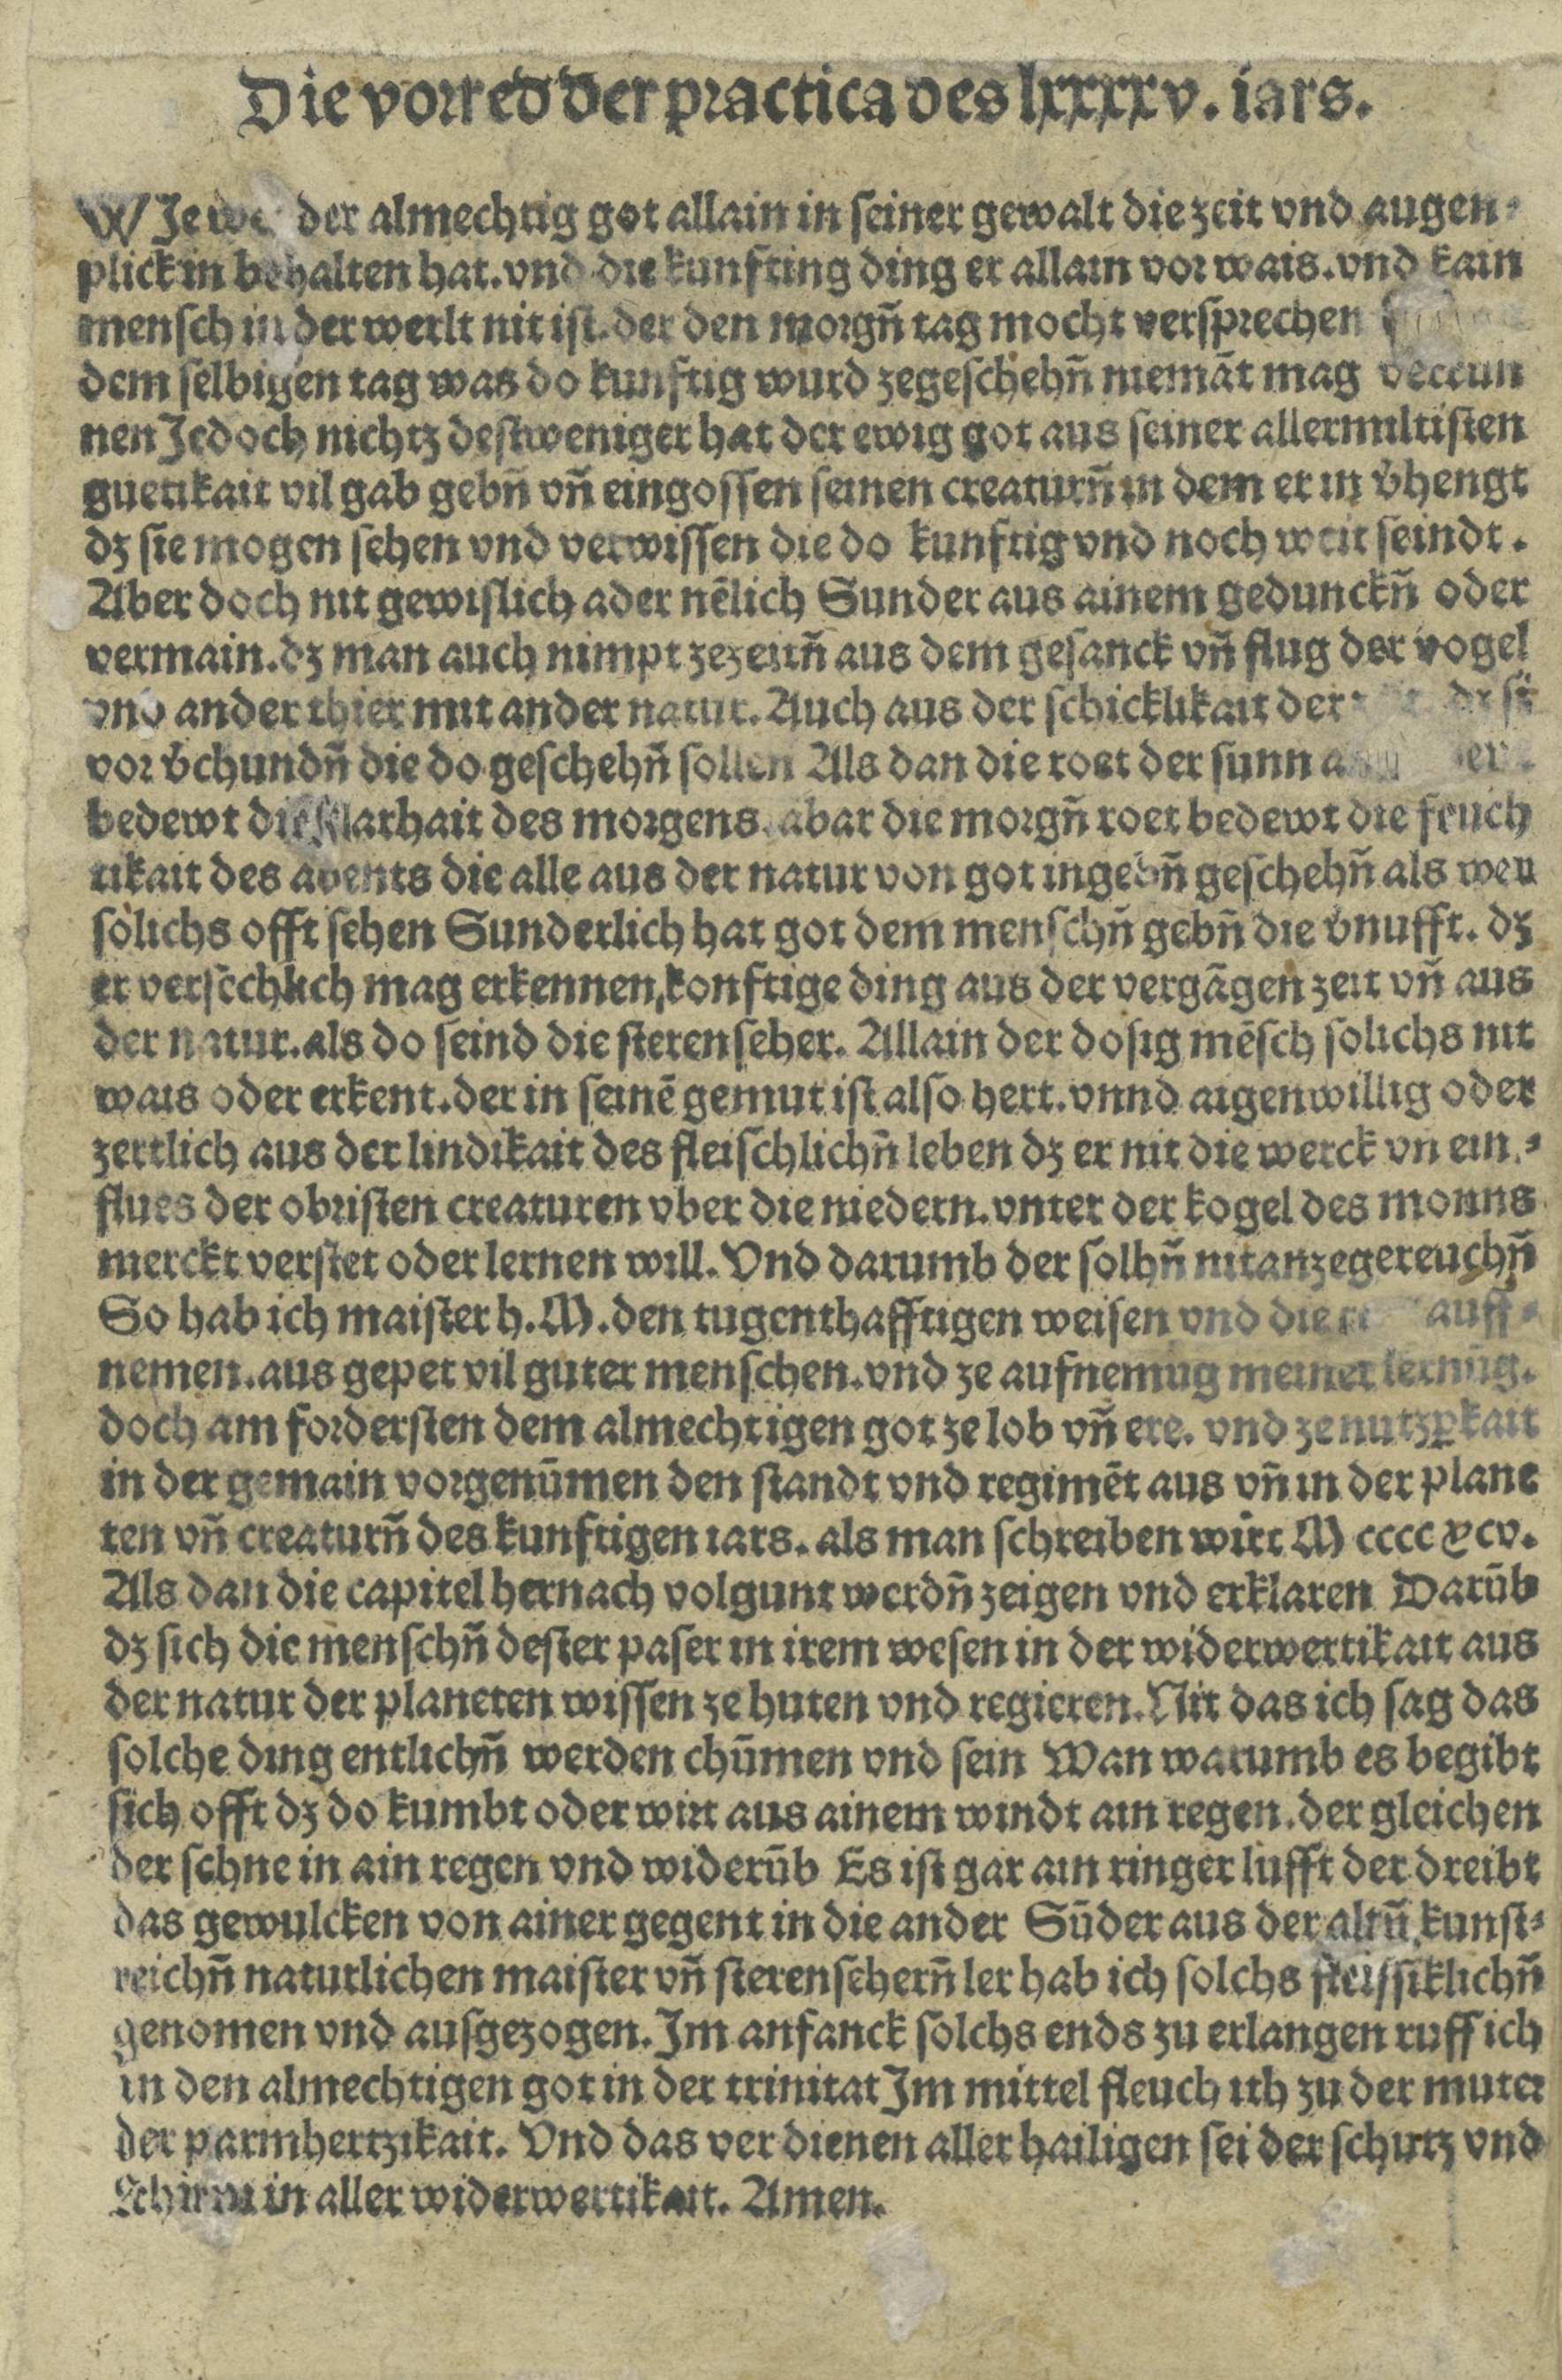 Die vorred der practica des lxxxxv. iars.
WJe der almechtig got allain in seiner gewalt die zeit vnd augen⸗
plick in behalten hat. vnd die kunfting ding er allain vor wais. vnd kain
mensch in der werlt nit ist. der den morgn̄ tag mocht versprechen
dem selbigen tag was do kunftig wurd zegeschehn̄ niemāt mag
nen Jedoch nichtz destweniger hat der ewig got aus seiner allermiltisten
guetikait vil gab gebn̄ vn̄ eingossen seinen creaturn̄ in dem er in v̓hengt
dz sie mogen sehen vnd verwissen die do kunftig vnd noch weit seindt.
Aber doch nit gewislich ader nēlich Sunder aus ainem gedunckn̄ oder
vermain. dz man auch nimpt zezeitn̄ aus dem gesanck vn̄ flug der vogel
vnd ander thier mit ander natur. Auch aus der schicklikait der dz si
vor v̓chundn̄ die do geschehn̄ sollen Als dan die roet der sunn
bedewt die klarhait des morgens. abar die morgn̄ roet bedewt die feuch
tikait des abents die alle aus der natur von got ingebn̄ geschehn̄ als weu
solichs offt sehen Sunderlich hat got dem menschn̄ gebn̄ die v̓nufft. dz
er versechlich mag erkennen, konftige ding aus der vergāgen zeit vn̄ aus
der natur. als do seind die sterenseher. Allain der dosig mēsch solichs nit
wais oder erkent. der in seinē gemut ist also hert. vnnd aigenwillig oder
zertlich aus der lindikait des fleischlichn̄ leben dz er nit die werck vn ein⸗
flues der obristen creaturen vber die niedern. vnter der kogel des monns
merckt verstet oder lernen will. Vnd darumb der solhn̄ nit anzegereuchn̄
So hab ich maister h. M. den tugenthafftigen weisen vnd die auff⸗
nemen. aus gepet vil guter menschen. vnd ze aufnemūg meiner lernūg.
doch am fordersten dem almechtigen got ze lob vn̄ ere. vnd ze nutzꝑkait
in der gemain vorgenūmen den standt vnd regimēt aus vn̄ in der plane
ten vn̄ creaturn̄ des kunftigen iars. als man schreiben wirt M cccc xcv.
Als dan die capitel hernach volgunt werdn̄ zeigen vnd erklaren Darūb
dz sich die menschn̄ dester paser in irem wesen in der widerwertikait aus
der natur der planeten wissen ze huten vnd regieren. Nit das ich sag das
solche ding entlichn̄ werden chūmen vnd sein Wan warumb es begibt
sich offt dz do kumbt oder wirt aus ainem windt ain regen. der gleichen
der schne in ain regen vnd widerūb Es ist gar ain ringer lufft der dreibt
das gewulcken von ainer gegent in die ander Sūder aus der altn̄ kunst⸗
reichn̄ naturlichen maister vn̄ sterensehern̄ ler hab ich solchs fleissiklichn̄
genomen vnd ausgezogen. Jm anfanck solchs ends zu erlangen ruff ich
in den almechtigen got in der trinitat Jm mittel fleuch ith zu der muter
der parmhertzikait. Vnd das ver dienen aller hailigen sei der schutz vnd
Schirm in aller widerwertikait. Amen.